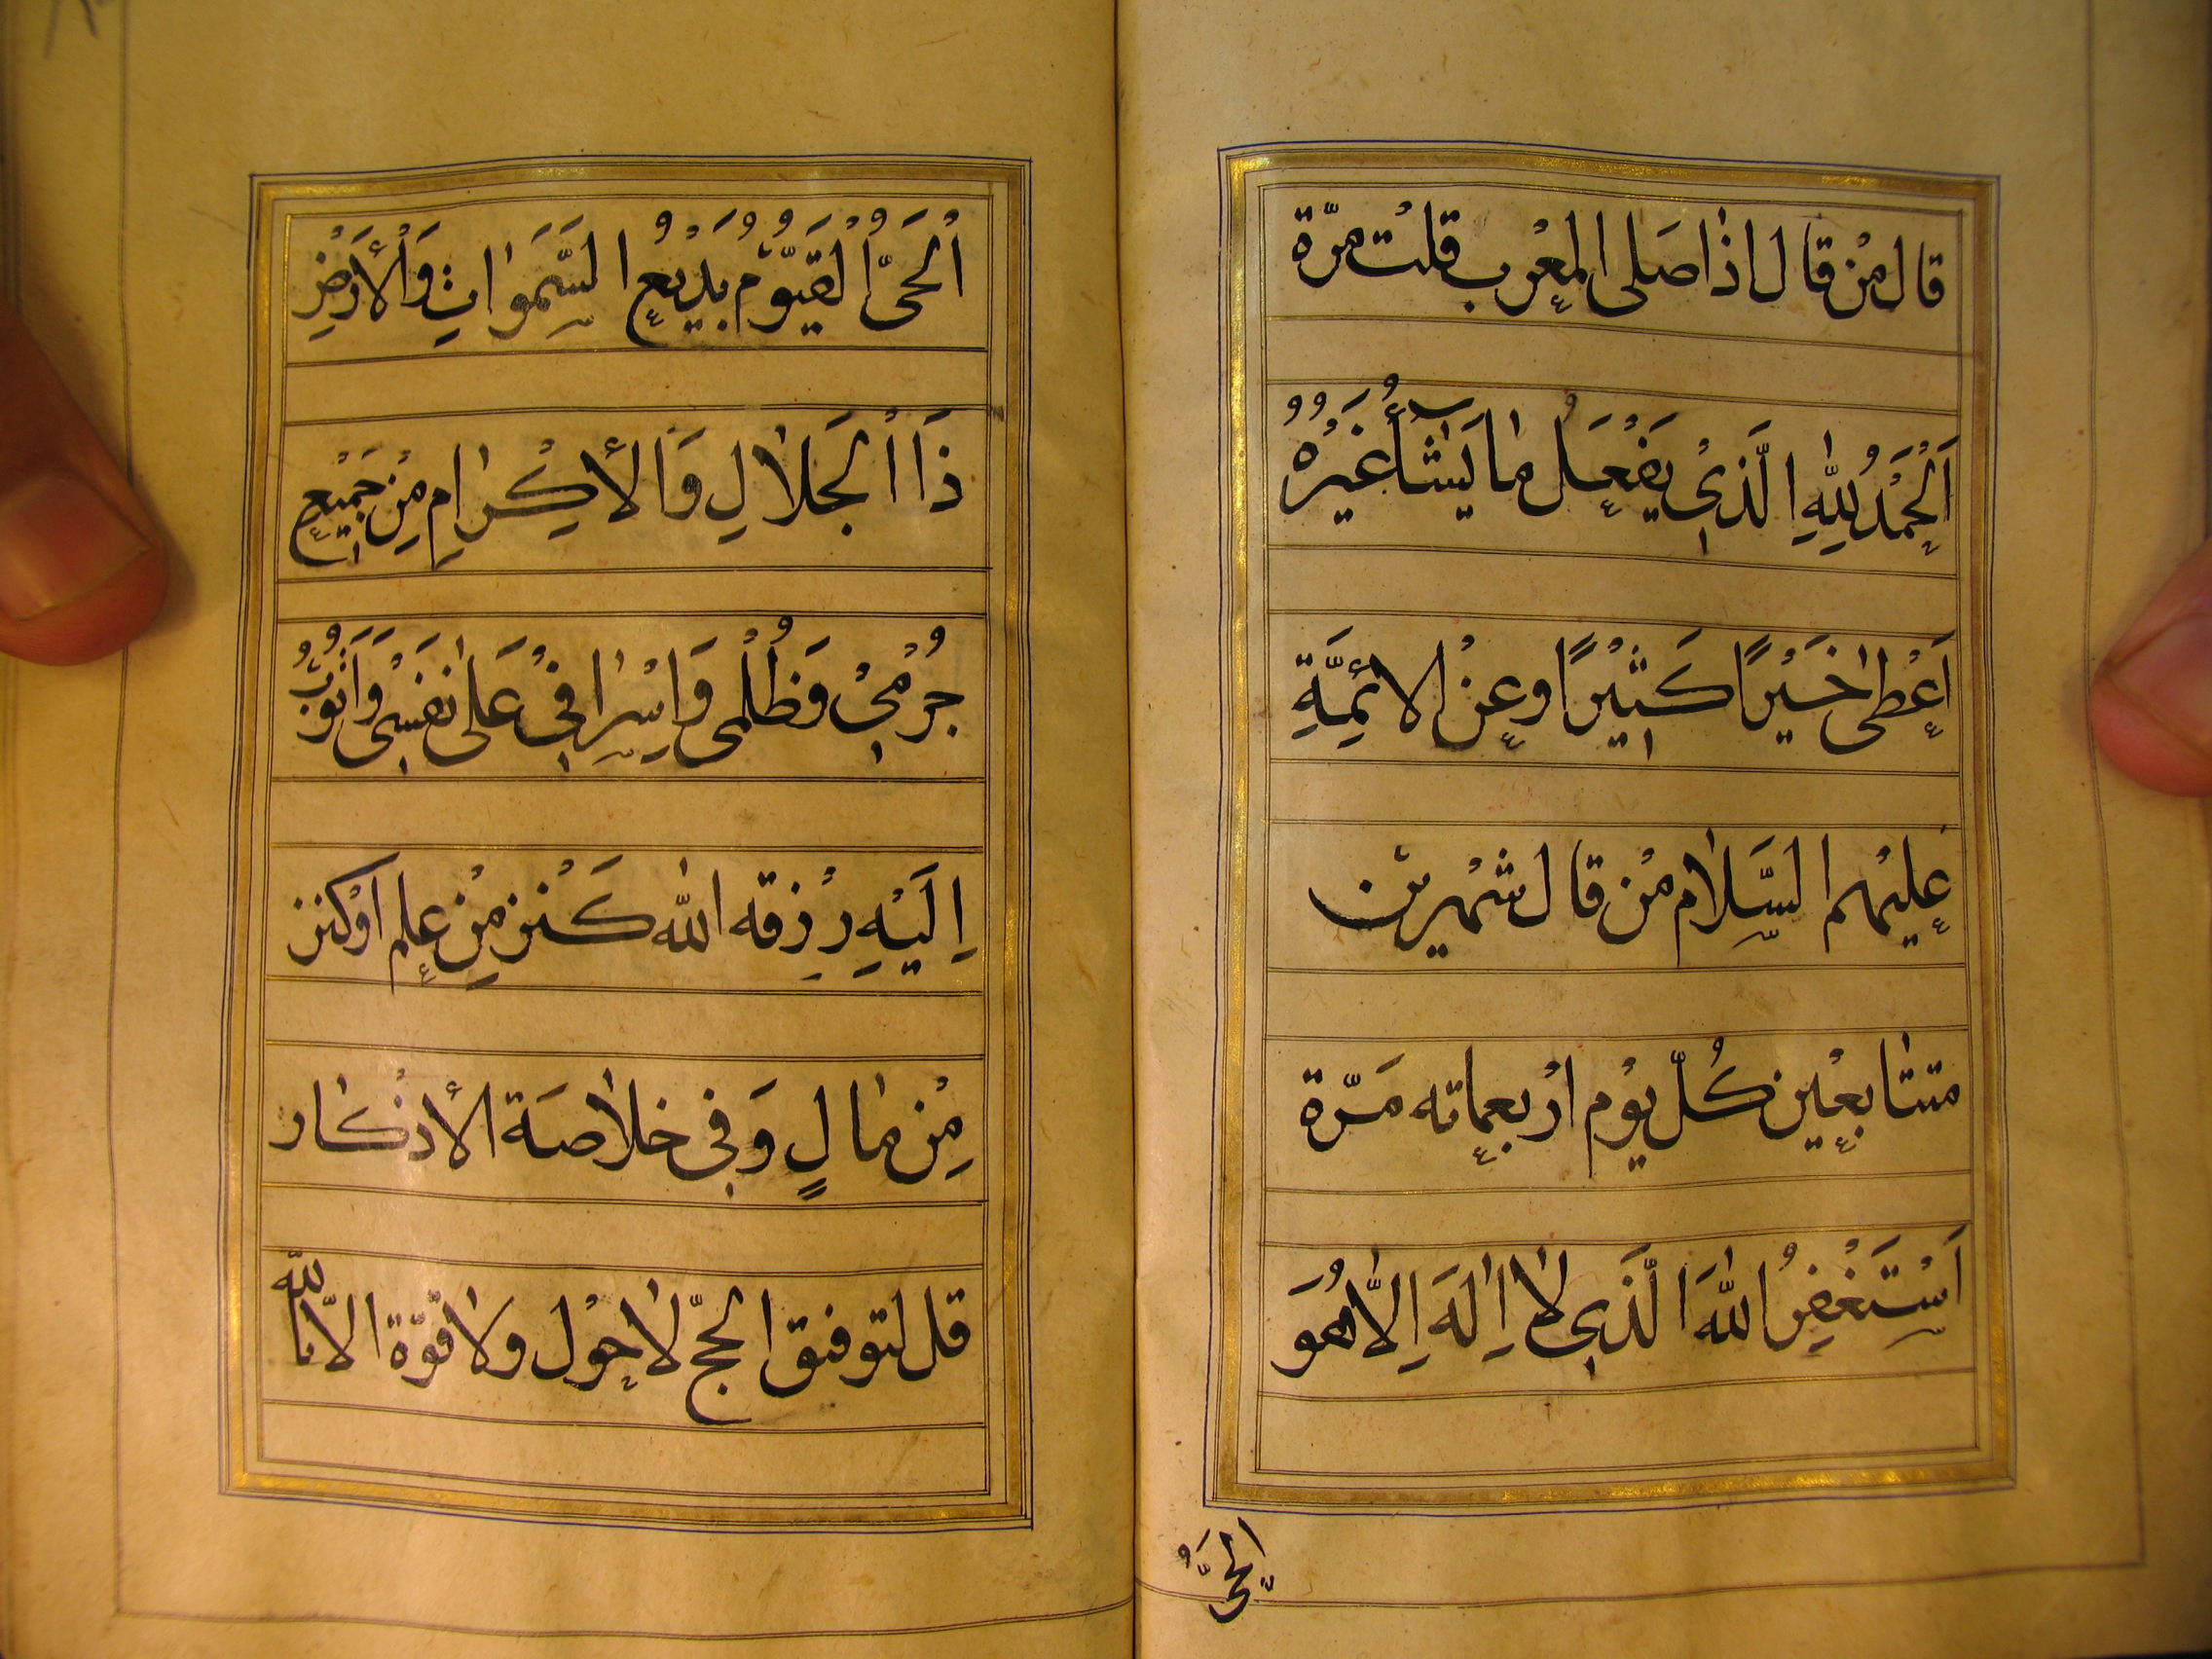 قال مْن قال اذا صَلى المغْرب قلتْ مرّة
اَلْحَمْدُ لِلّٰهِ الَّذيْ يَفْعَلُ مٰا يَشٰٓاءُ غَيْرُهُ
اَعْطى خَيْرًا كَثيْرًا وعنْ الائِمَّةِ
عليْهم السَّلٰام مْن قال شهْرين
متتٰابعْين كُلّ يوْم ارْبعمٰاته مَرّة
اَسْتَغْفِرُ اللّٰهَ الَّذي لٰا اِلٰهَ اِلَّا هُوَ
الْحَىُّ
اْلحَىُّ اْلقَيُّوْمُ بَديْعُ السَّمَوٰاتِ وَاْلأَرْضِ
ذَا اْلجَلٰالِ وَالْأِكْرٰامِ مِنْ جَميْعِ
جُرْميْ وَظُلْمى وَاِسْرٰافيْ عَلٰى نَفْسى وَاَتُوْبُ
اِلَيْهِ رُزِقه اللّٰه كَنْز مِنْ علم اوْ كنز
مِنْ مٰالٍ وَفي خلٰاصَة الأذْكٰار
قل لتوفيق الحجّ لٰا حوْل ولٰا قوّة الّا باللّٰه